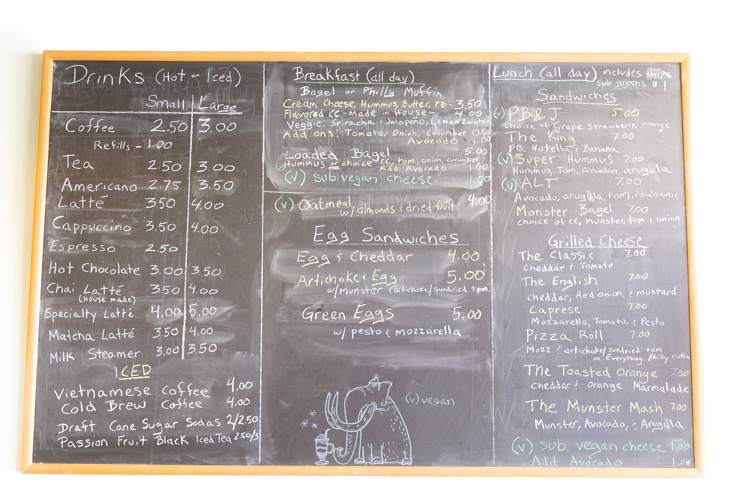 Drinks (Hot or Iced)
Small Large
Coffee 2.50 3.00
Refills - 1.00
Tea 2.50 3.00
Americano 2.75 3.50
Latté 3.50 4.00
Cappuccino 3.50 4.00
Espresso 2.50
Hot Chocolate 3.00 3.50
Chai Latté 3.50 4.00
(House made)
Specialty Latté 4.00 5.00
Matcha Latté 3.50 4.00
Milk Steamer 3.00 3.50
ICED
Vietnamese Coffee 4.00
Cold Brew Coffee 4.00
Draft Cane Sugar Sodas 2/2.50
Passion Fruit Black Iced Tea 2.50/3
Breakfast (all day)
Bagel or Philly Muffin
Cream Cheese, Hummus, Butter, PB - 3.50
Flavored CC - Made in House - 4.00
Veggie, Sriracha & Jalapeño, Lemon
Add ons: Tomato, Onion, Cucumber 0.50
Avocado - 1.00
Loaded Bagel 5.00
Hummus or choice cc, tom, onion, cucumber
Add Avocado 1.00
(v) sub vegan cheese 1.00
(v) Oatmeal 4.00
w/ almonds & dried fruit
Egg Sandwiches
Egg & Cheddar 4.00
Artichoke & Egg 5.00
w/ munster (artichoke/sundried tom
Green Eggs 5.00
w/ pesto & mozzarella
(v) vegan
Lunch (all day) includes chips
sub greens $1
Sandwiches
(v) PB & J 5.00
choice of Grape, strawberry, orange
The King 7.00
PB, Nutella & Banana
(v) Super Hummus 7.00
Hummus, Tom, Cucumber, arugula
(v) ALT 7.00
Avocado, arugula, tom, & balsamic
Monster Bagel 7.00
choice of cc, munster, tom & onion
Grilled Cheese
The Classic 7.00
Cheddar & Tomato
The English 7.00
cheddar, Red onion & mustard
Caprese 7.00
Mozzarella, Tomato, & Pesto
Pizza Roll 7.00
Mozz & artichoke/sundried tom
on Everything Philly Muffin
The Toasted Orange 7.00
Cheddar & Orange Marmalade
The Munster Mash 7.00
Munster, Avocado, & Arugula
(v) sub. vegan cheese 1.00
Add Avocado - 1.00